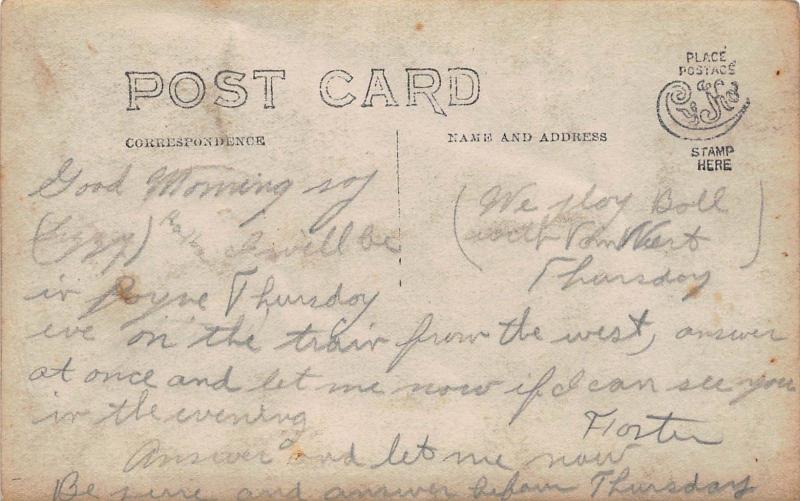 POST CARD
PLACE
POSTAGE
STAMP
HERE
CORRESPONDENCE
NAME AND ADDRESS
Good Morning say
(Lizzy) I will be
in Payne Thursday
eve on the train from the west, answer
at once and let me now if I can see you
in the evening
Floster
Answer and let me now
Be sure and answer before Thursday
(We play Ball
with Van Wert
Thursday)